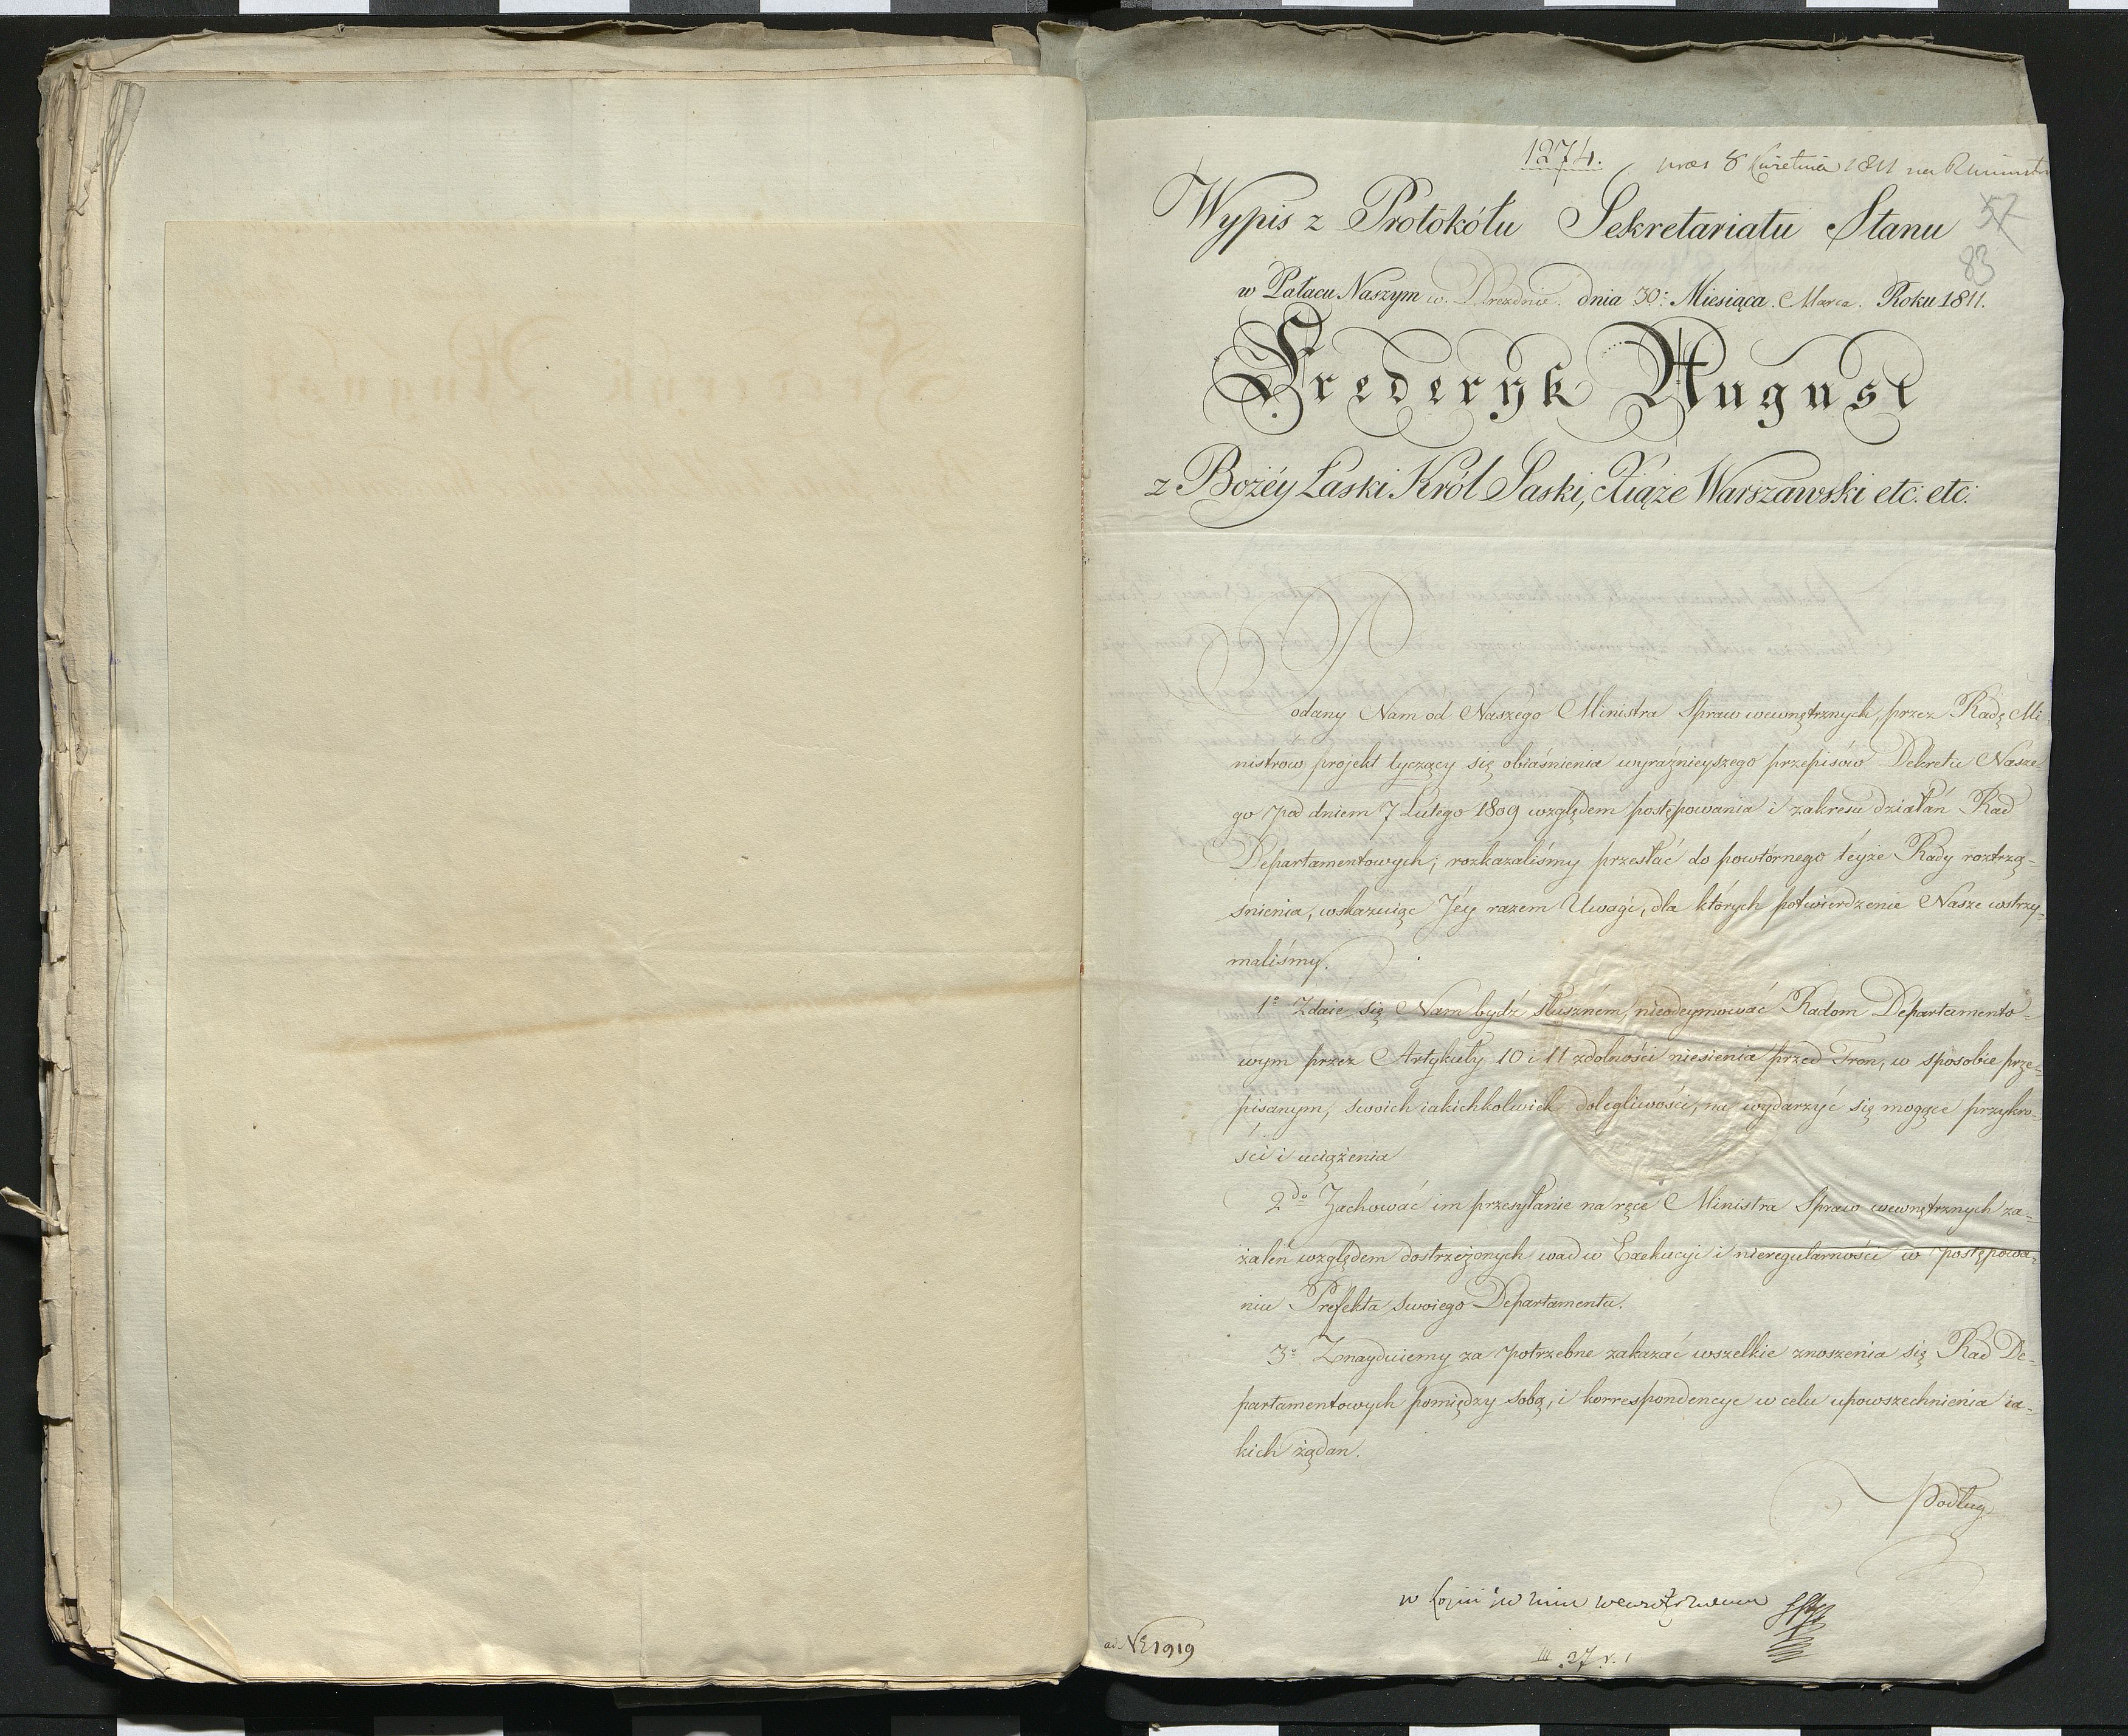 1274.
8 Kwietnia 1811 na
57
83
Wypis z Protokółu Sekretariatu Stanu
w Pałacu Naszym w Dreźdnie dnia 30: Miesiąca Marca Roku 1811.
Frederyk August
z Bożéy Łaski Król Saski, Xiąże Warszawski etc: etc:
Podany Nam od Naszego Ministra Spraw wewnętrznych, przez Radę Mi-
nistrów, projekt tyczący się obiaśnienia wyraźnieyszego przepisów Dekretu Nasze-
go pod dniem 7 Lutego 1809 względem postępowania i zakresu działań Rad
Departamentowych; rozkazaliśmy przesłać do powtórnego teyże Rady roztrzą-
śnienia, wskazuiąc Jéy razem Uwagi, dla których potwierdzenie Nasze wstrzy-
maliśmy.
1° Zdaie się Nam bydź słuszném, nieodeymować Radom Departamento-
wym przez Artykuły 10 i 11 zdolności niesienia przed Tron, w sposobie prze-
pisanym, swoich iakichkolwiek dolegliwości, na wydarzyć się mogące przykro-
ści i uciążenia
2do Zachować im przesyłanie na ręce Ministra Spraw wewnętrznych za-
żaleń względem dostrzeżonych wad w Exekucyi i nieregularności w postępowa-
niu Prefekta swoiego Departamentu.
3° Znayduiemy za potrzebne zakazać wszelkie znoszenia się Rad De-
partamentowych pomiędzy sobą, i korrespondencye w celu upowszechnienia ia-
kich żądań.
Podług
ad N 1919
III 27 r. 1